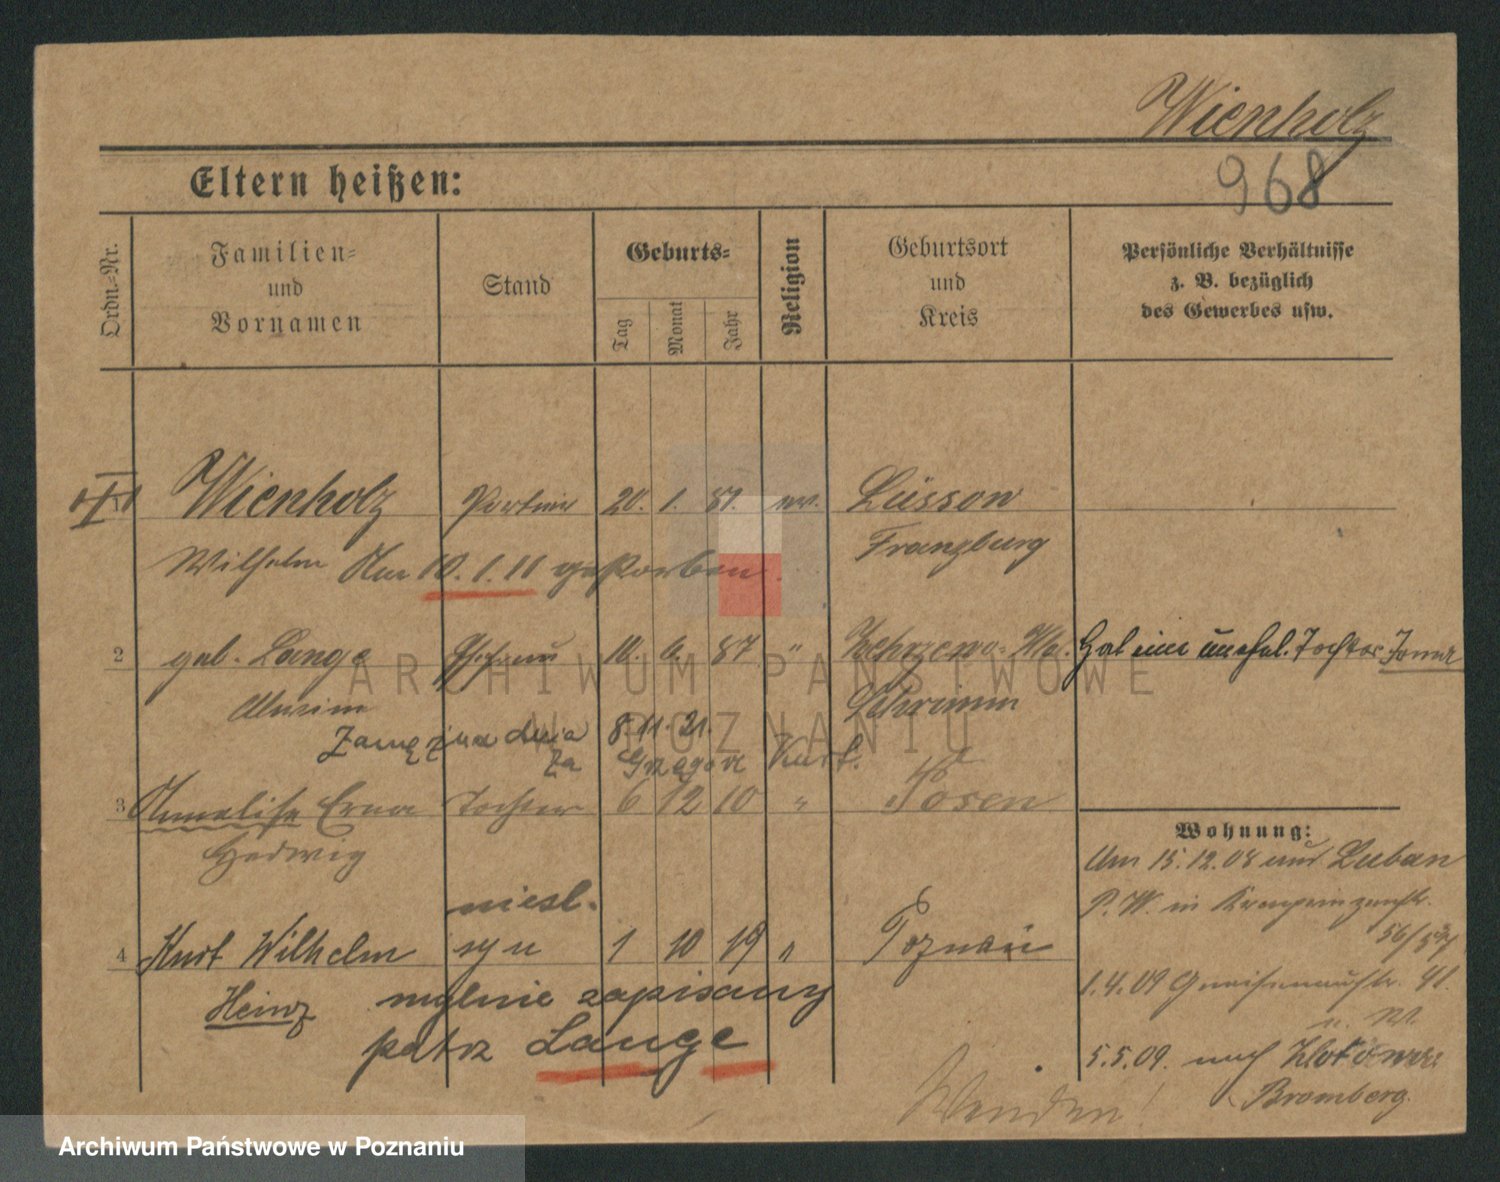 Wienholz
968
Eltern heißen:
Ordn.-Nr.
Familien-
und
Vornamen
Stand
Geburts-
Tag
Monat
Jahr
Religion
Geburtsort
und
Kreis
Persönliche Verhältnisse
z. B. bezüglich
des Gewerbes usw.
Wienholz Portier 20. 1. 81. ev. Lüssow
Wilhelm Am 10.1.11 gestorben. Franzburg
2 geb. Lange Ehefrau 6. 87 "
Schrimm
Zamężna dnia 8.11.21.
za Kurt.
3 Annaliese Erna Tochter 6 12 10 " Posen
Hedwig
Hat eine unehel. Tochter
Wohnung:
Am 15.12.08 aus Luban
P. W. in Kronprinzenstr.
56/57
nieśl.
4 Kurt Wilhelm syn 1 10 19 " Poznań
Heinz mylnie zapisany
patrz Lange
1.4.09 Gneisenaustr. 41.
5.5.09. nach
Bromberg.
Wenden!
ARCHIWUM PAŃSTWOWE
W POZNANIU
Archiwum Państwowe w Poznaniu